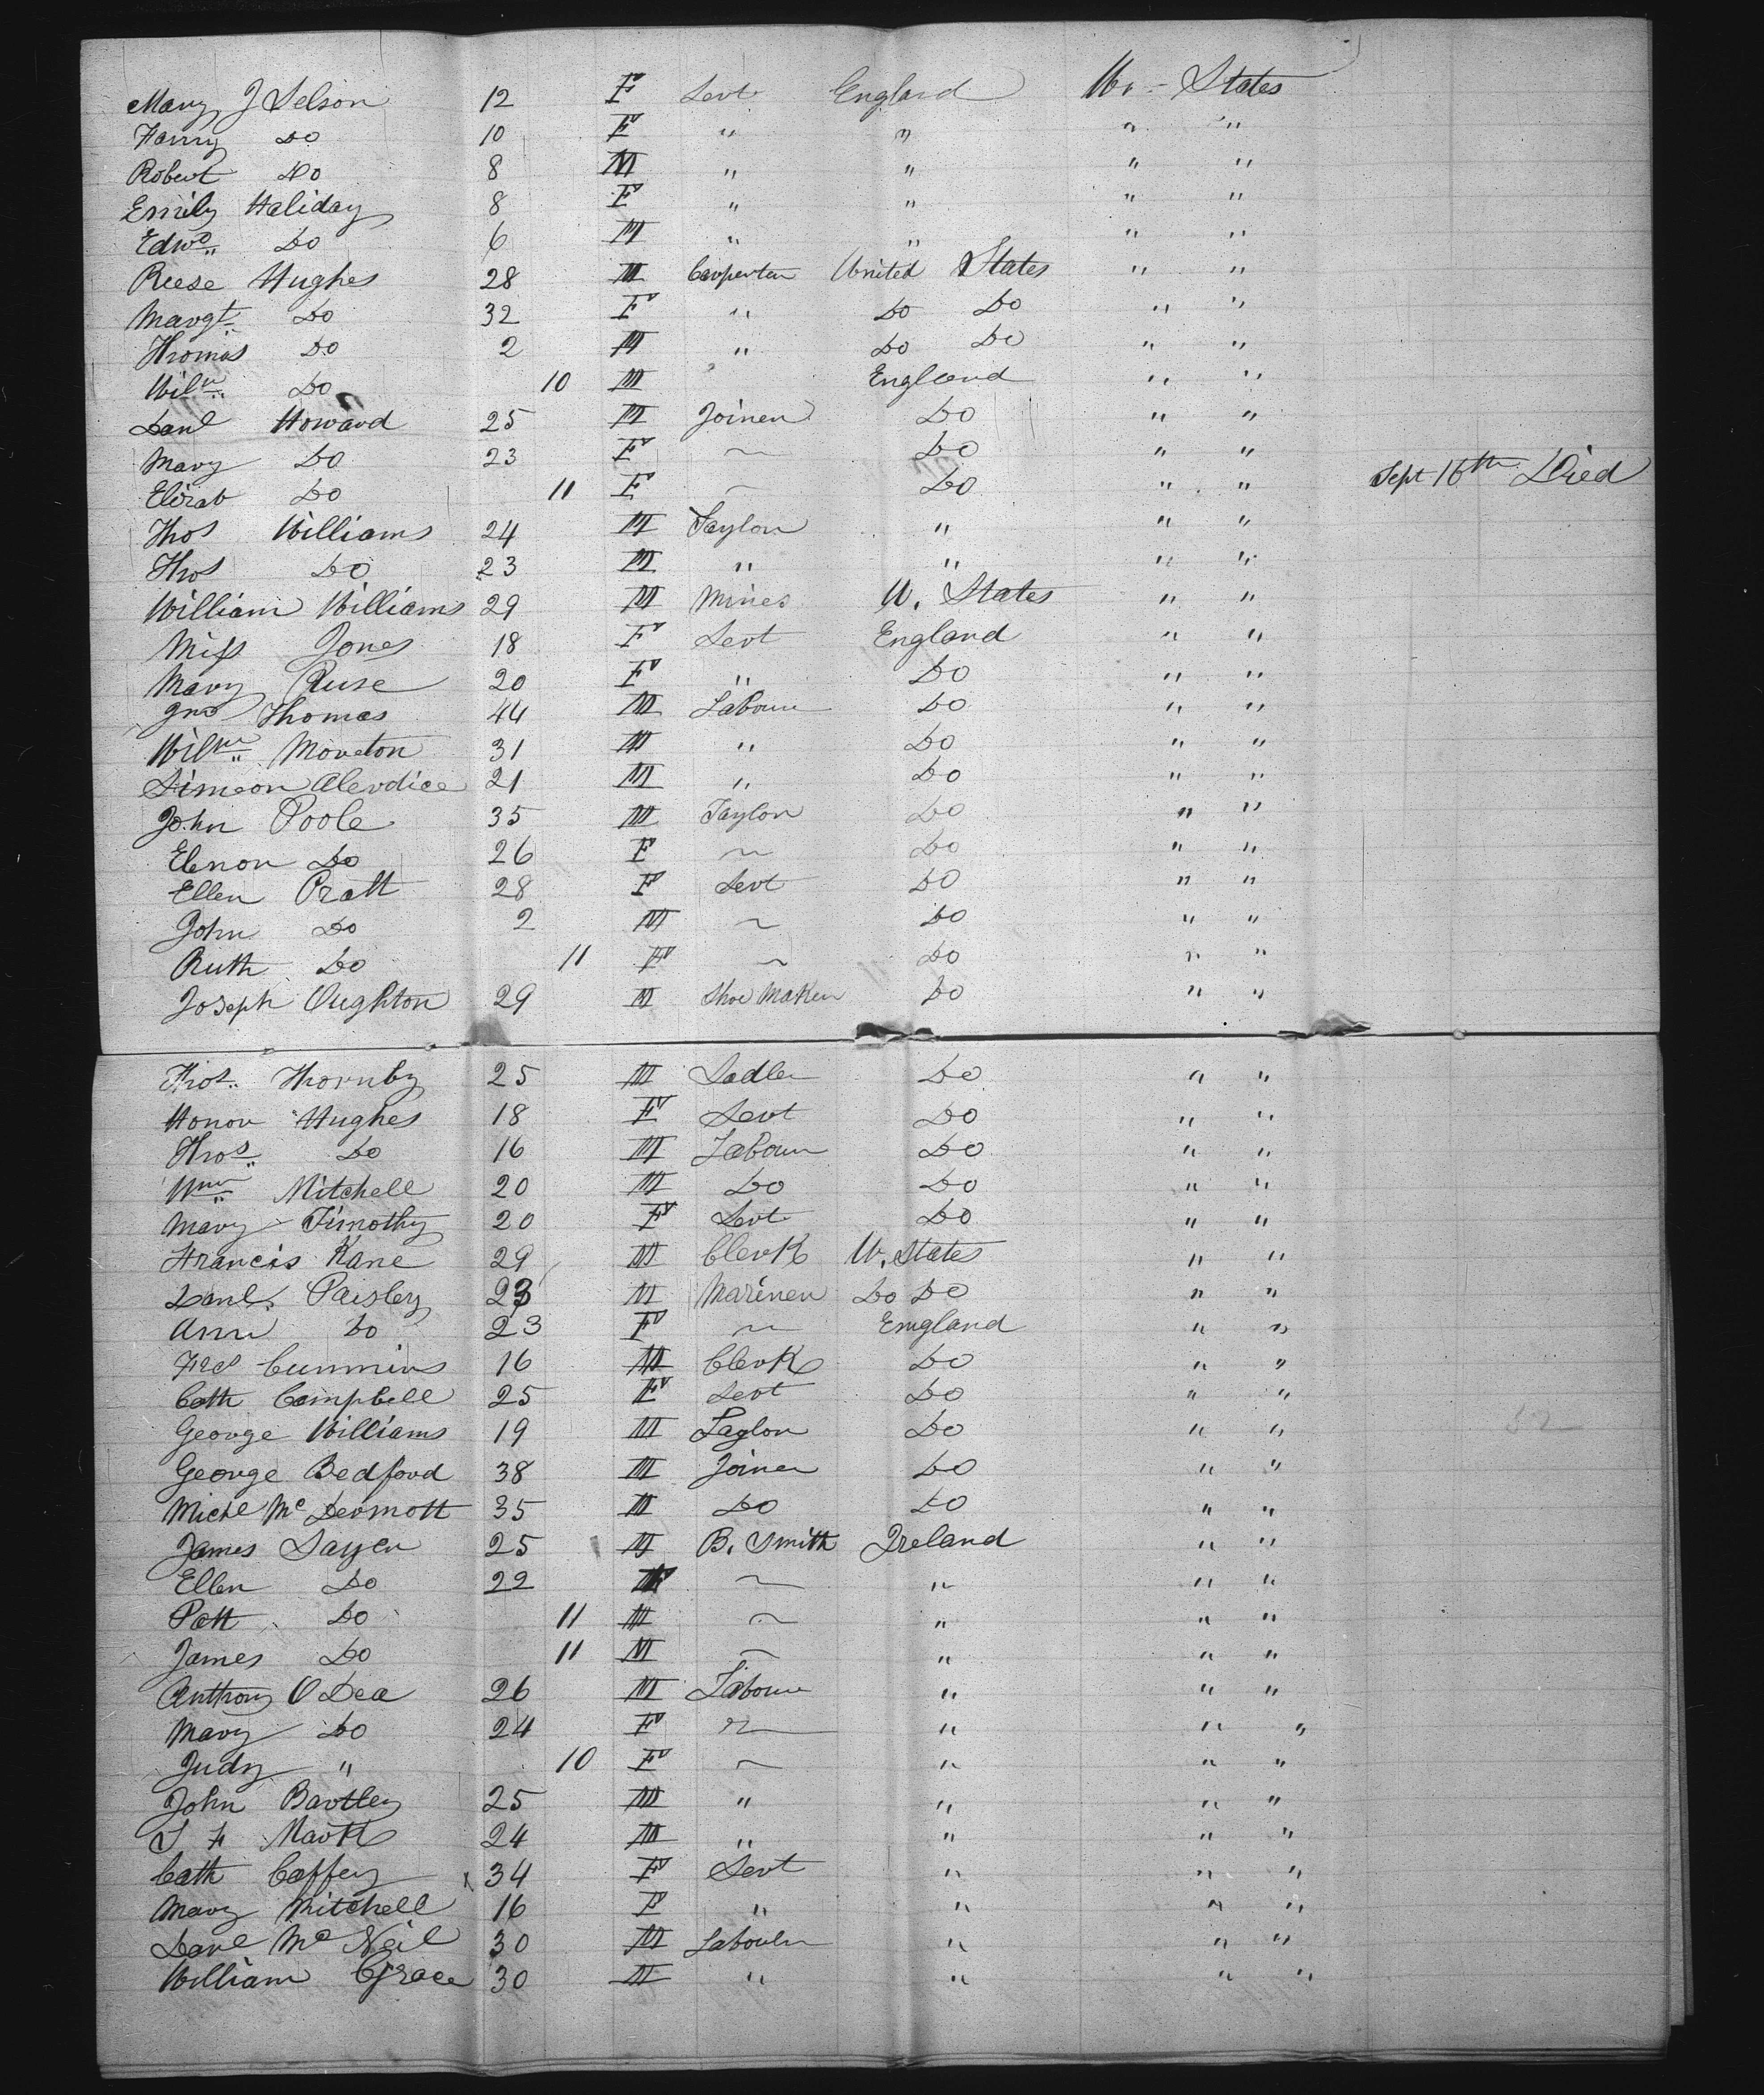 Mary J Selson 12 F Sevt England Un. States
Fanny Do 10 F " " " "
Robert Do 8 M " " " "
Emily Haliday 8 F " " " "
Edwd Do 6 M " " " "
Reese Hughes 28 M Carpenter United States " "
Margt Do 32 F " Do Do " "
Thomas Do 2 M " Do Do " "
Willm Do 10 M England " "
Danl Howard 25 M Joiner Do " "
Mary Do 23 F ~ Do " "
Elizab Do 11 F ~ Do " " Sept 16th Died
Thos Williams 24 M Taylor " " "
Thos Do 23 M " " " "
William Williams 29 M Mines U. States " "
Miss Jones 18 F Sevt England " "
Mary Ruse 20 F " Do " "
Jno Thomas 44 M Labour Do " "
Willm Moreton 31 M " Do " "
Simeon Alerdice 21 M " Do " "
John Poole 35 M Taylor Do " "
Elenor Do 26 F ~ Do " "
Ellen Pratt 28 F Sevt Do " "
John Do 2 M ~ Do " "
Ruth Do 11 F ~ Do " "
Joseph Oughton 29 M Shoe Maker Do " "
Thos. Thornby 25 M Sadler Do " "
Honor Hughes 18 F Sevt Do " "
Thos Do 16 M Labour Do " "
Wm Mitchell 20 M Do Do " "
Mary Timothy 20 F Sevt Do " "
Francis Kane 29 M Clerk U. States " "
Danl. Paisley 23 M Mariner Do Do " "
Ann Do 23 F ~ England " "
Fred Cummins 16 M Clerk Do " "
Cath Campbell 25 F Sevt Do " "
George Williams 19 M Taylor Do " "
George Bedford 38 M Joiner Do " "
Michl Mc Dermott 35 M Do Do " "
James Sayer 25 M B. Smith Ireland " "
Ellen Do 22 F ~ " " "
Patt Do 11 M ~ " " "
James Do 11 M ~ " " "
Anthony O Dea 26 M Labour " " "
Mary Do 24 F ~ " " "
Judy " 10 F ~ " " "
John Bartley 25 M " " " "
Mark 24 M " " " "
Cath Coffey 34 F Sevt " " "
Mary Mitchell 16 F " " " "
Danl Mc Neil 30 M Labourr " " "
William Grace 30 M " " " "